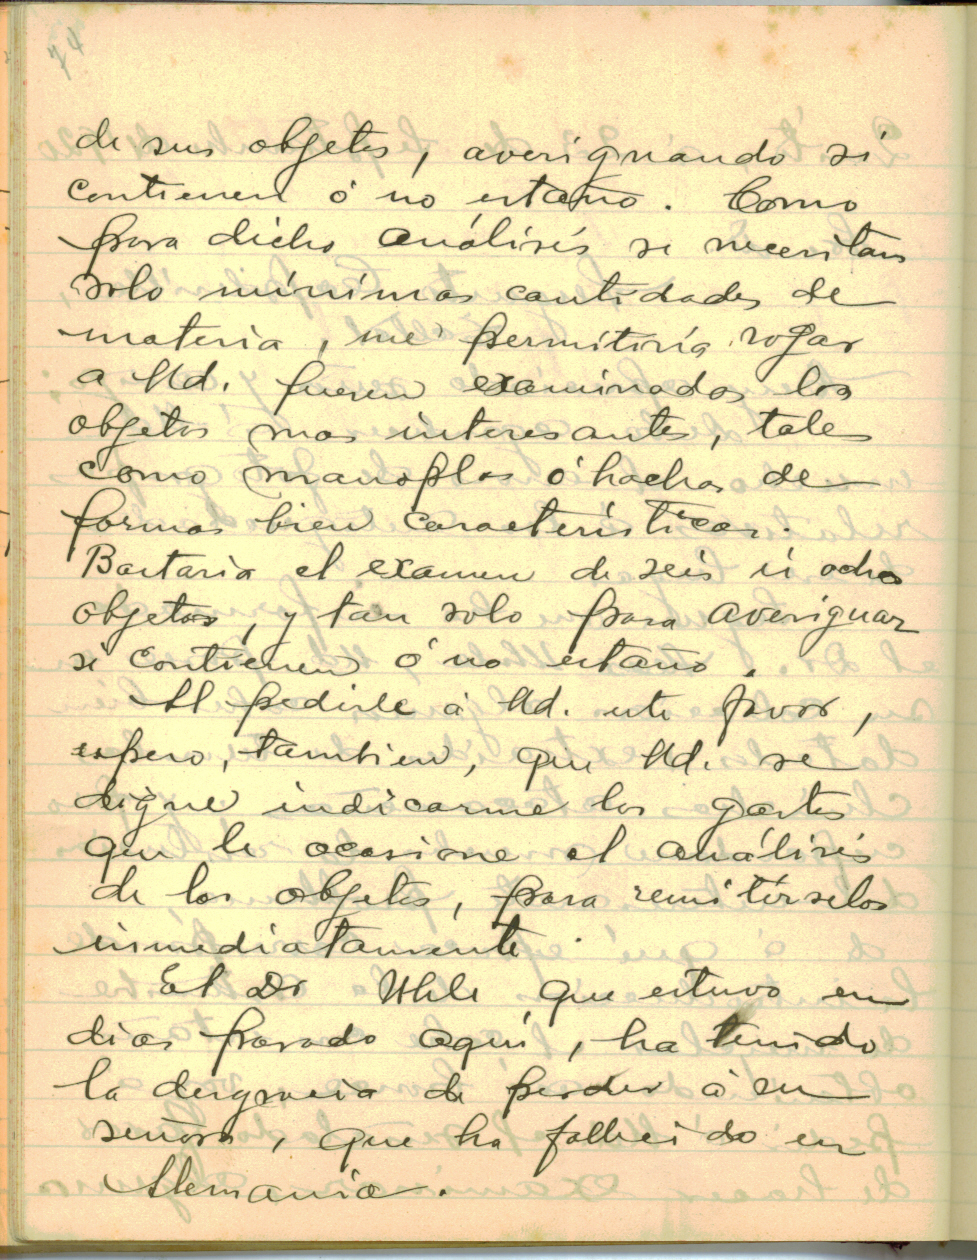 74
de sus objetos, averiguando si
contienen ó no estaño. Como
para dicho análisis se necesitan
solo mínimas cantidades de
materia, me permitiría rogar
a Ud. fueren examinados los
objetos mas interesantes, tales
como manoplas ó hachas de
formas bien características.
Bastaria el examen de seis ú ocho
objetos, y tan solo para averiguar
si contienen ó no estaño.
Al pedirle á Ud. este favor,
espero, tambien, que Ud. se
digne indicarme los gastos
que le ocasione el análisis
de los objetos, para remitírselos
inmediatamente.
El Dr Uhle, que estuvo en
dias pasado aqui, ha tenido
la desgracia de perder á su
señora, que ha fallecido en
Alemania.